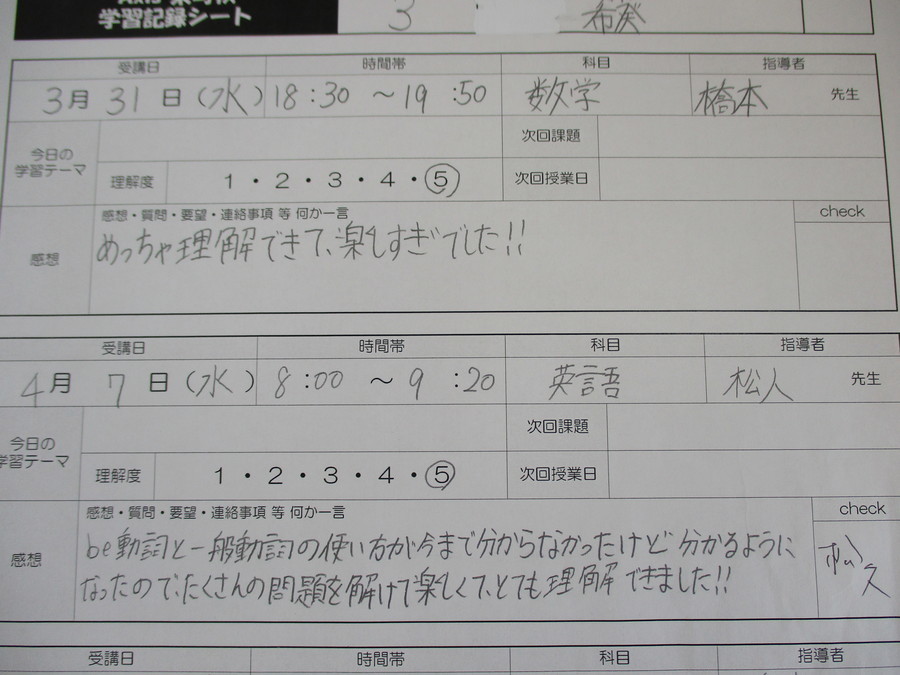 学習記録シート
3 希葵
受講日 時間帯 科目 指導者
3月 31日(水) 18:30 ～ 19:50 数学 橋本 先生
今日の学習テーマ 次回課題
理解度 1・2・3・4・5 次回授業日
感想・質問・要望・連絡事項 等 何か一言 check
感想 めっちゃ理解できて、楽しすぎでした!!
受講日 時間帯 科目 指導者
4月 7日(水) 8:00 ～ 9:20 英語 松久 先生
今日の学習テーマ 次回課題
理解度 1・2・3・4・5 次回授業日
感想・質問・要望・連絡事項 等 何か一言 check
感想 be動詞と一般動詞の使い方が今まで分からなかったけど分かるように
なったので、たくさんの問題を解けて楽しくて、とても理解できました!!
松久
受講日 時間帯 科目 指導者